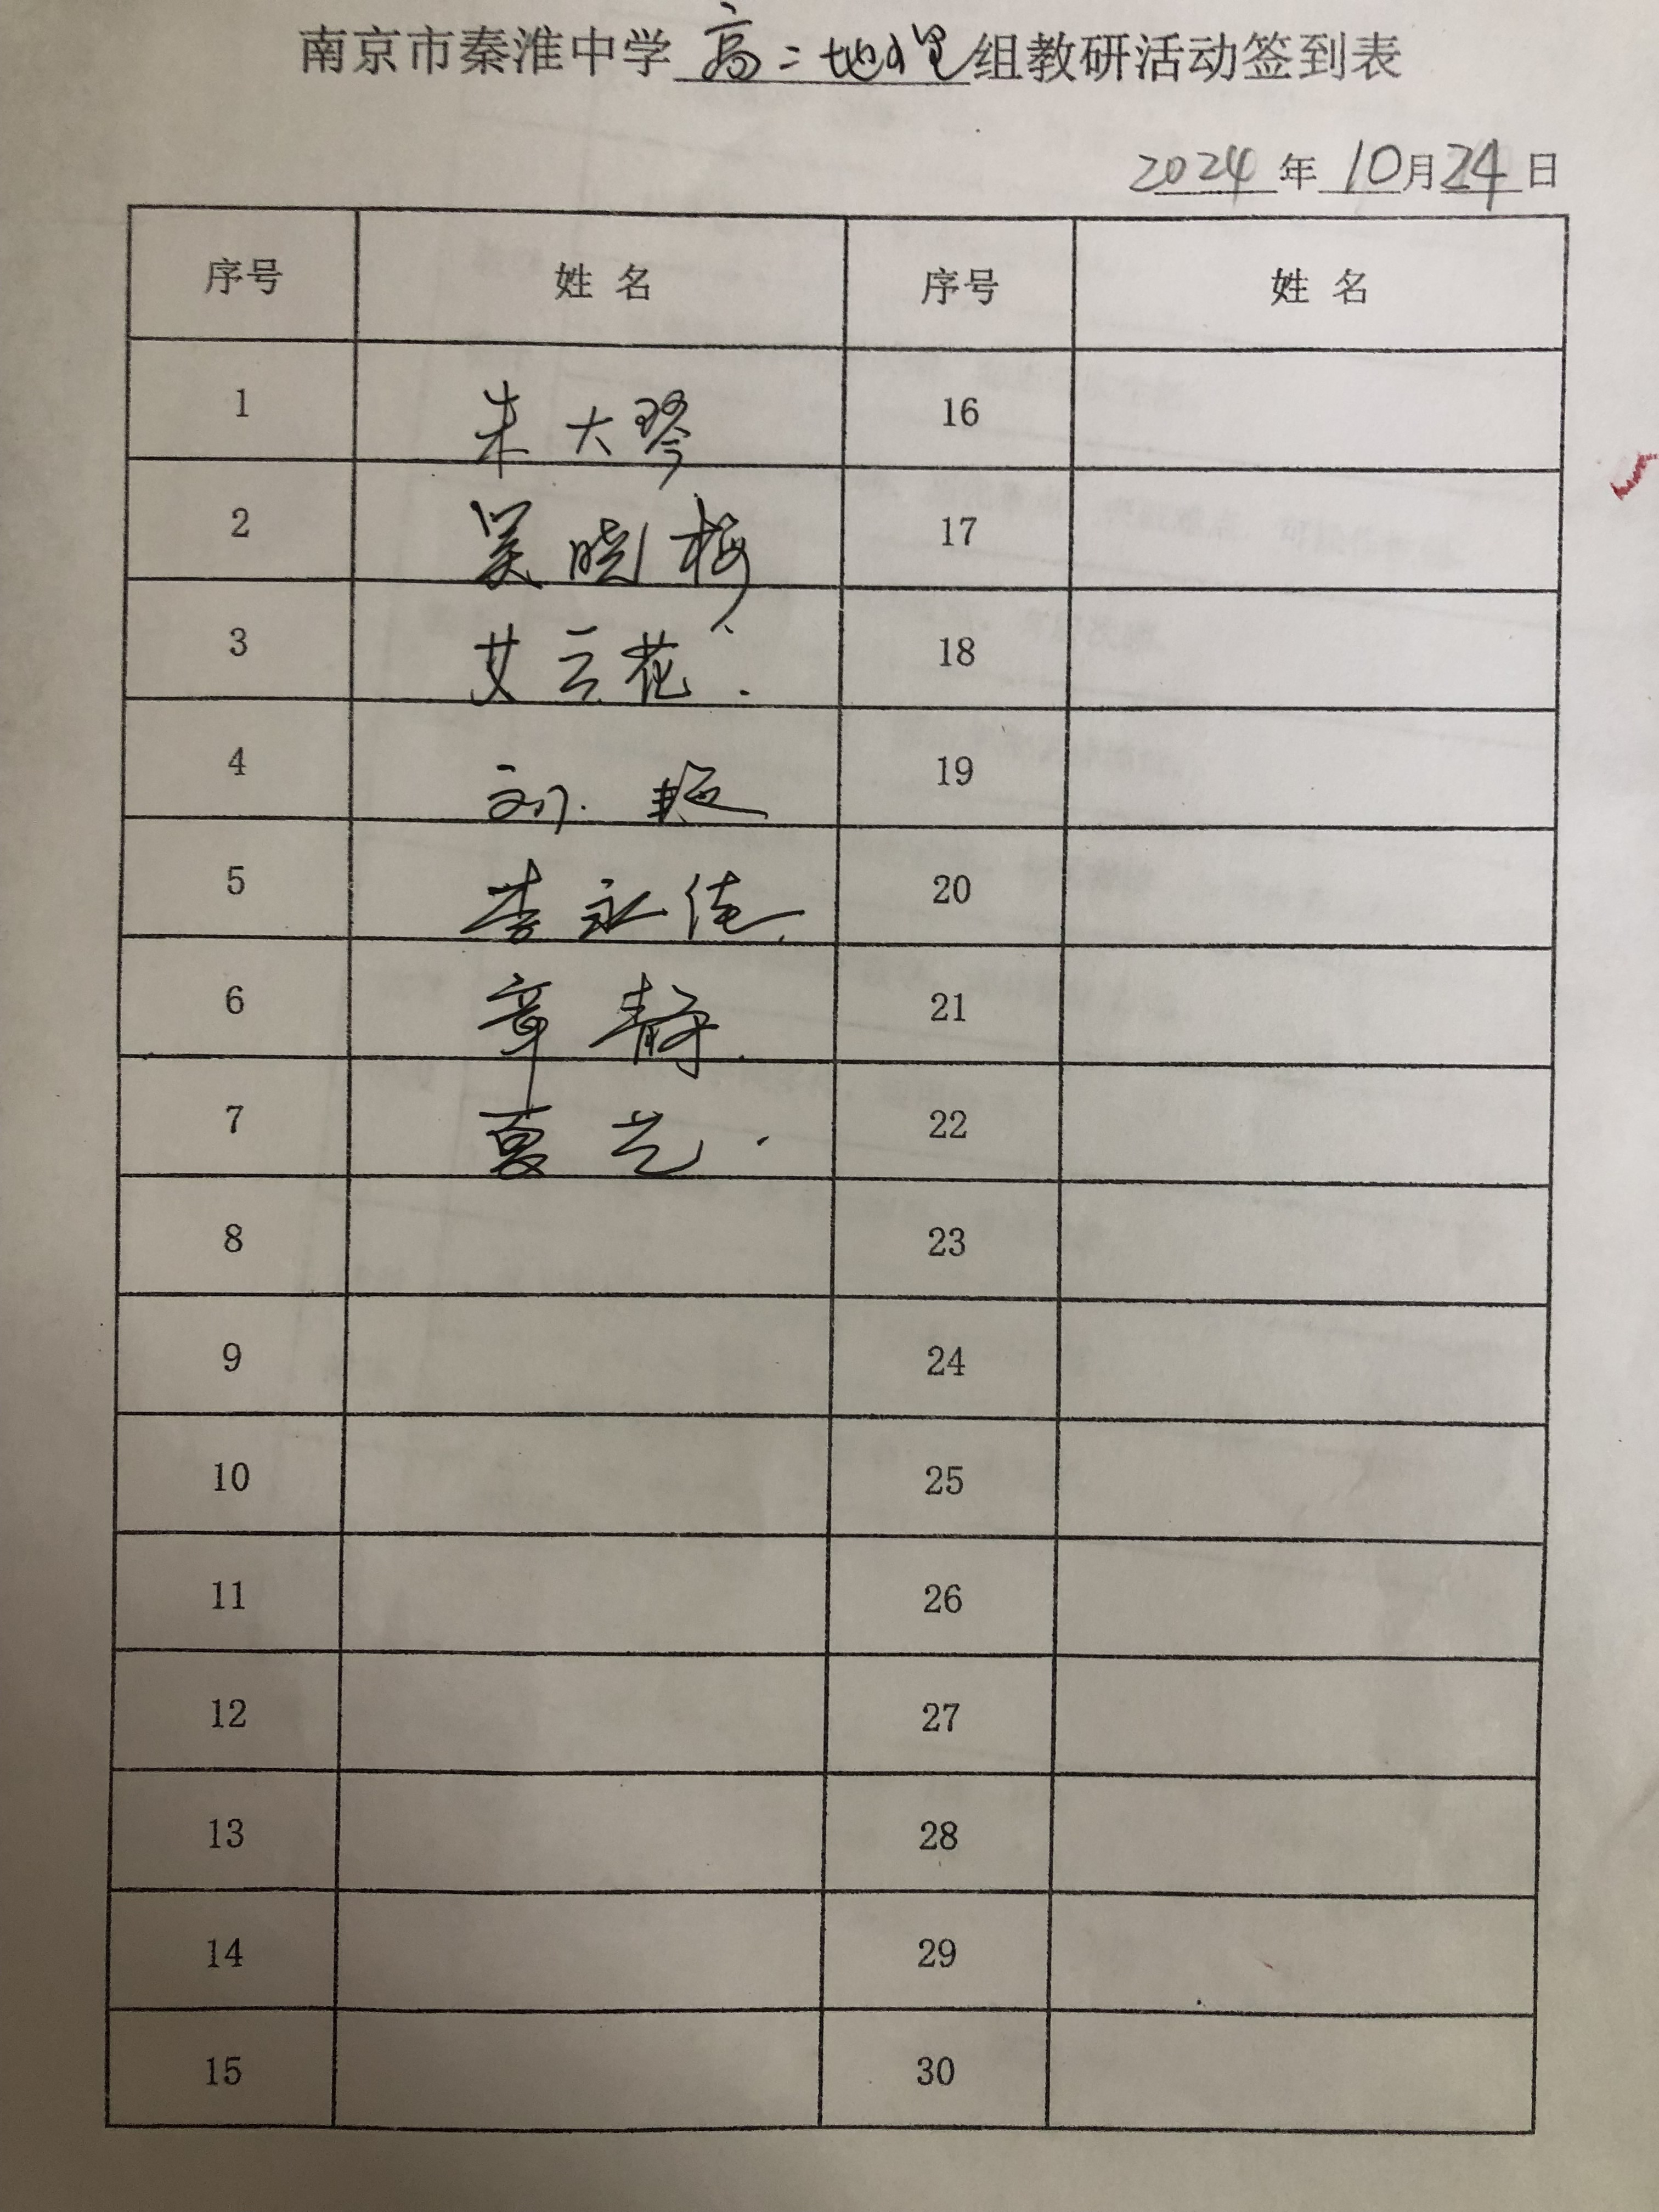 南京市秦淮中学高二地理组教研活动签到表
2024年10月24日
序号 姓名 序号 姓名
1 朱大琴 16
2 吴晓梅 17
3 艾云花. 18
4 刘艳 19
5 李永佳 20
6 章静. 21
7 夏艺. 22
8 23
9 24
10 25
11 26
12 27
13 28
14 29
15 30